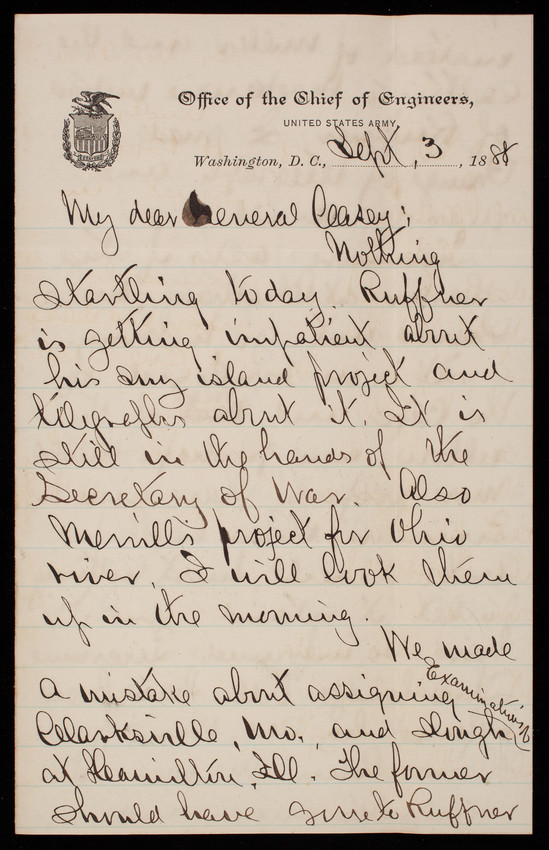 Office of the Chief of Engineers,
UNITED STATES ARMY,
Washington, D. C., Sept 3, 1888
My dear General Casey;
Nothing
startling today. Ruffner
is getting impatient about
his Sny island project and
telegraphs about it. It is
still in the hands of the
Secretary of War. Also
Merrill's project for Ohio
river. I will look them
up in the morning.
We made
a mistake about assigning Examinations
Clarksville, Mo., and Slough
at Hamilton, Ill. The former
should have gone to Ruffner